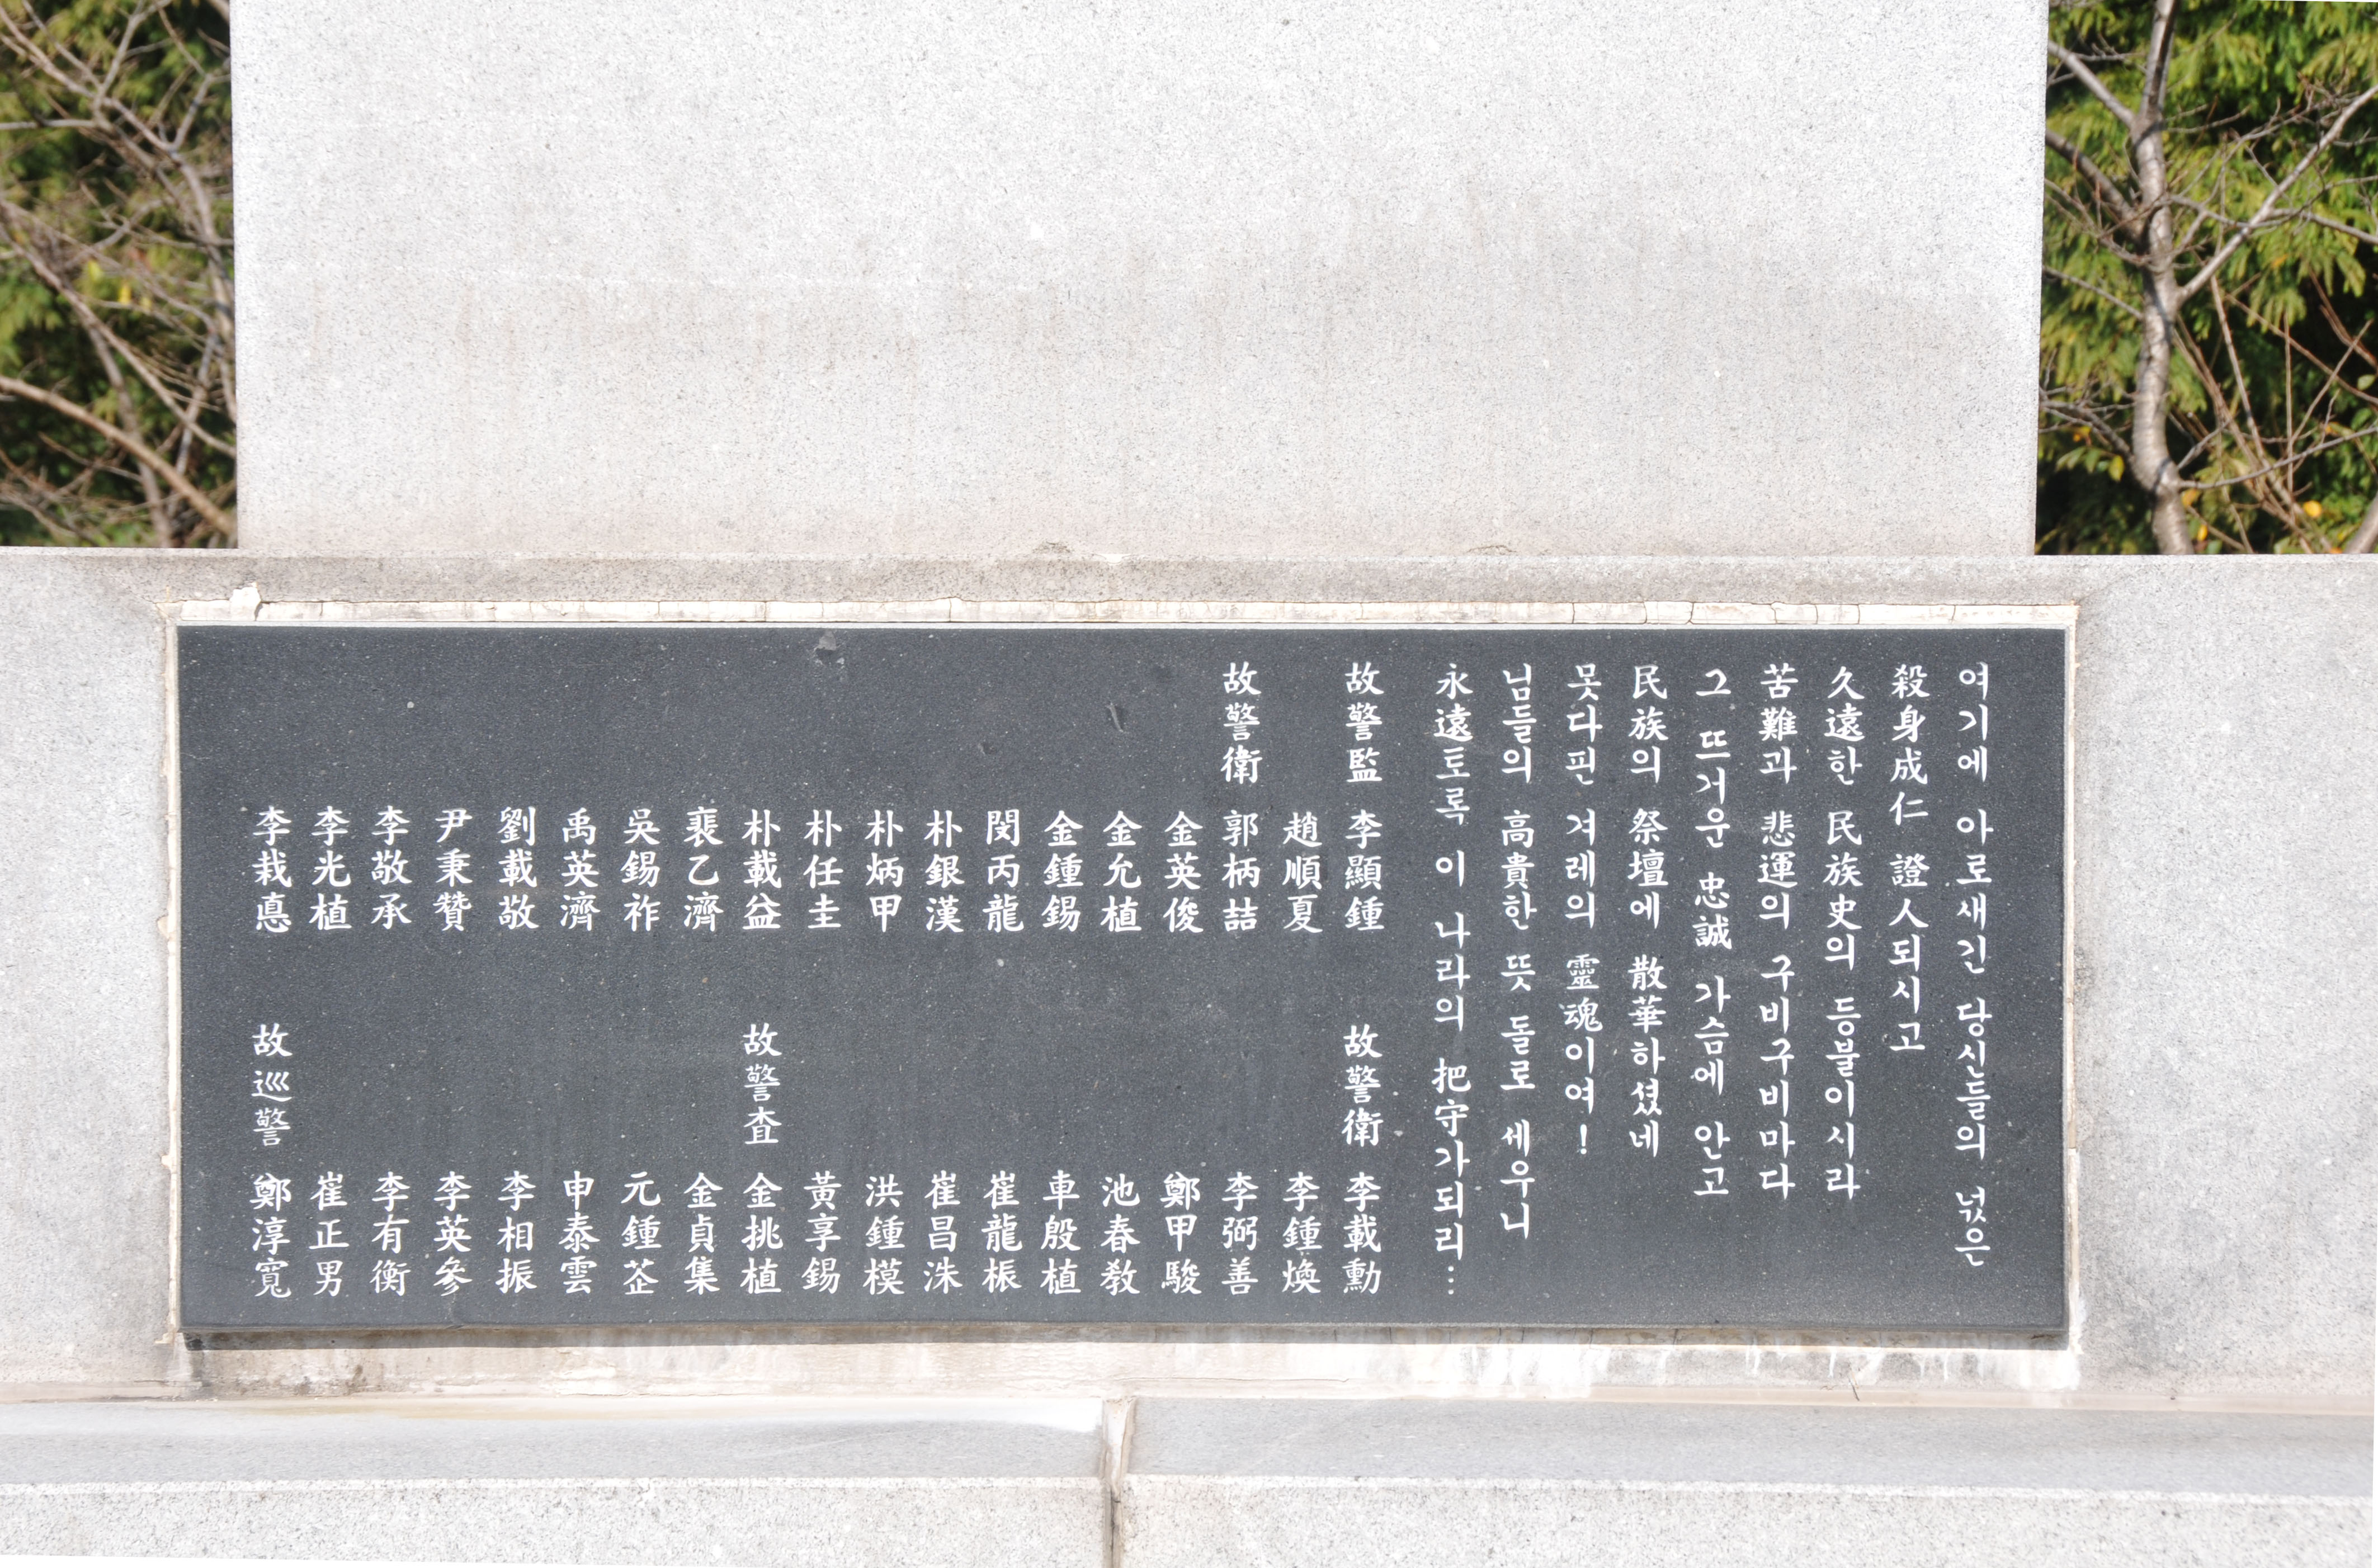 여기에 아로새긴 당신들의 넋은
殺身成仁 證人되시고
久遠한 民族史의 등불이시라
苦難과 悲運의 구비구비마다
그 뜨거운 忠誠 가슴에 안고
民族의 祭壇에 散華하셨네
못다핀 겨레의 靈魂이여!
님들의 高貴한 뜻 돌로 세우니
永遠토록 이 나라의 把守가되리…
故警監 李顯鍾
趙順夏
故警衛 郭柄喆
金英俊
金允植
金鍾錫
閔丙龍
朴銀漢
朴炳甲
朴任圭
朴載益
裵乙濟
吳錫祚
禹英濟
劉載敬
尹秉贊
李敬承
李光植
李栽悳
故警衛 李載勳
李鍾煥
李弼善
鄭甲駿
池春敎
車殷植
崔龍振
崔昌洙
洪鍾模
黃享錫
故警査 金挑植
金貞集
元鍾苤
申泰雲
李相振
李英參
李有衡
崔正男
故巡警 鄭淳寬